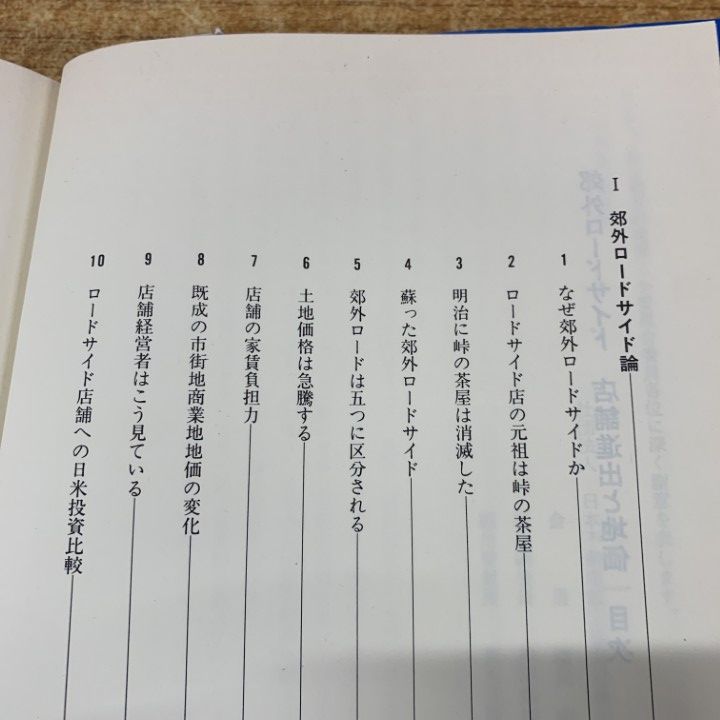 I 郊外ロードサイド論
1 なぜ郊外ロードサイドか
2 ロードサイド店の元祖は峠の茶屋
3 明治に峠の茶屋は消滅した
4 蘇った郊外ロードサイド
5 郊外ロードは五つに区分される
6 土地価格は急騰する
7 店舗の家賃負担力
8 既成の市街地商業地地価の変化
9 店舗経営者はこう見ている
10 ロードサイド店舗への日米投資比較
郊外ロードサイド 店舗進出と地価―目次